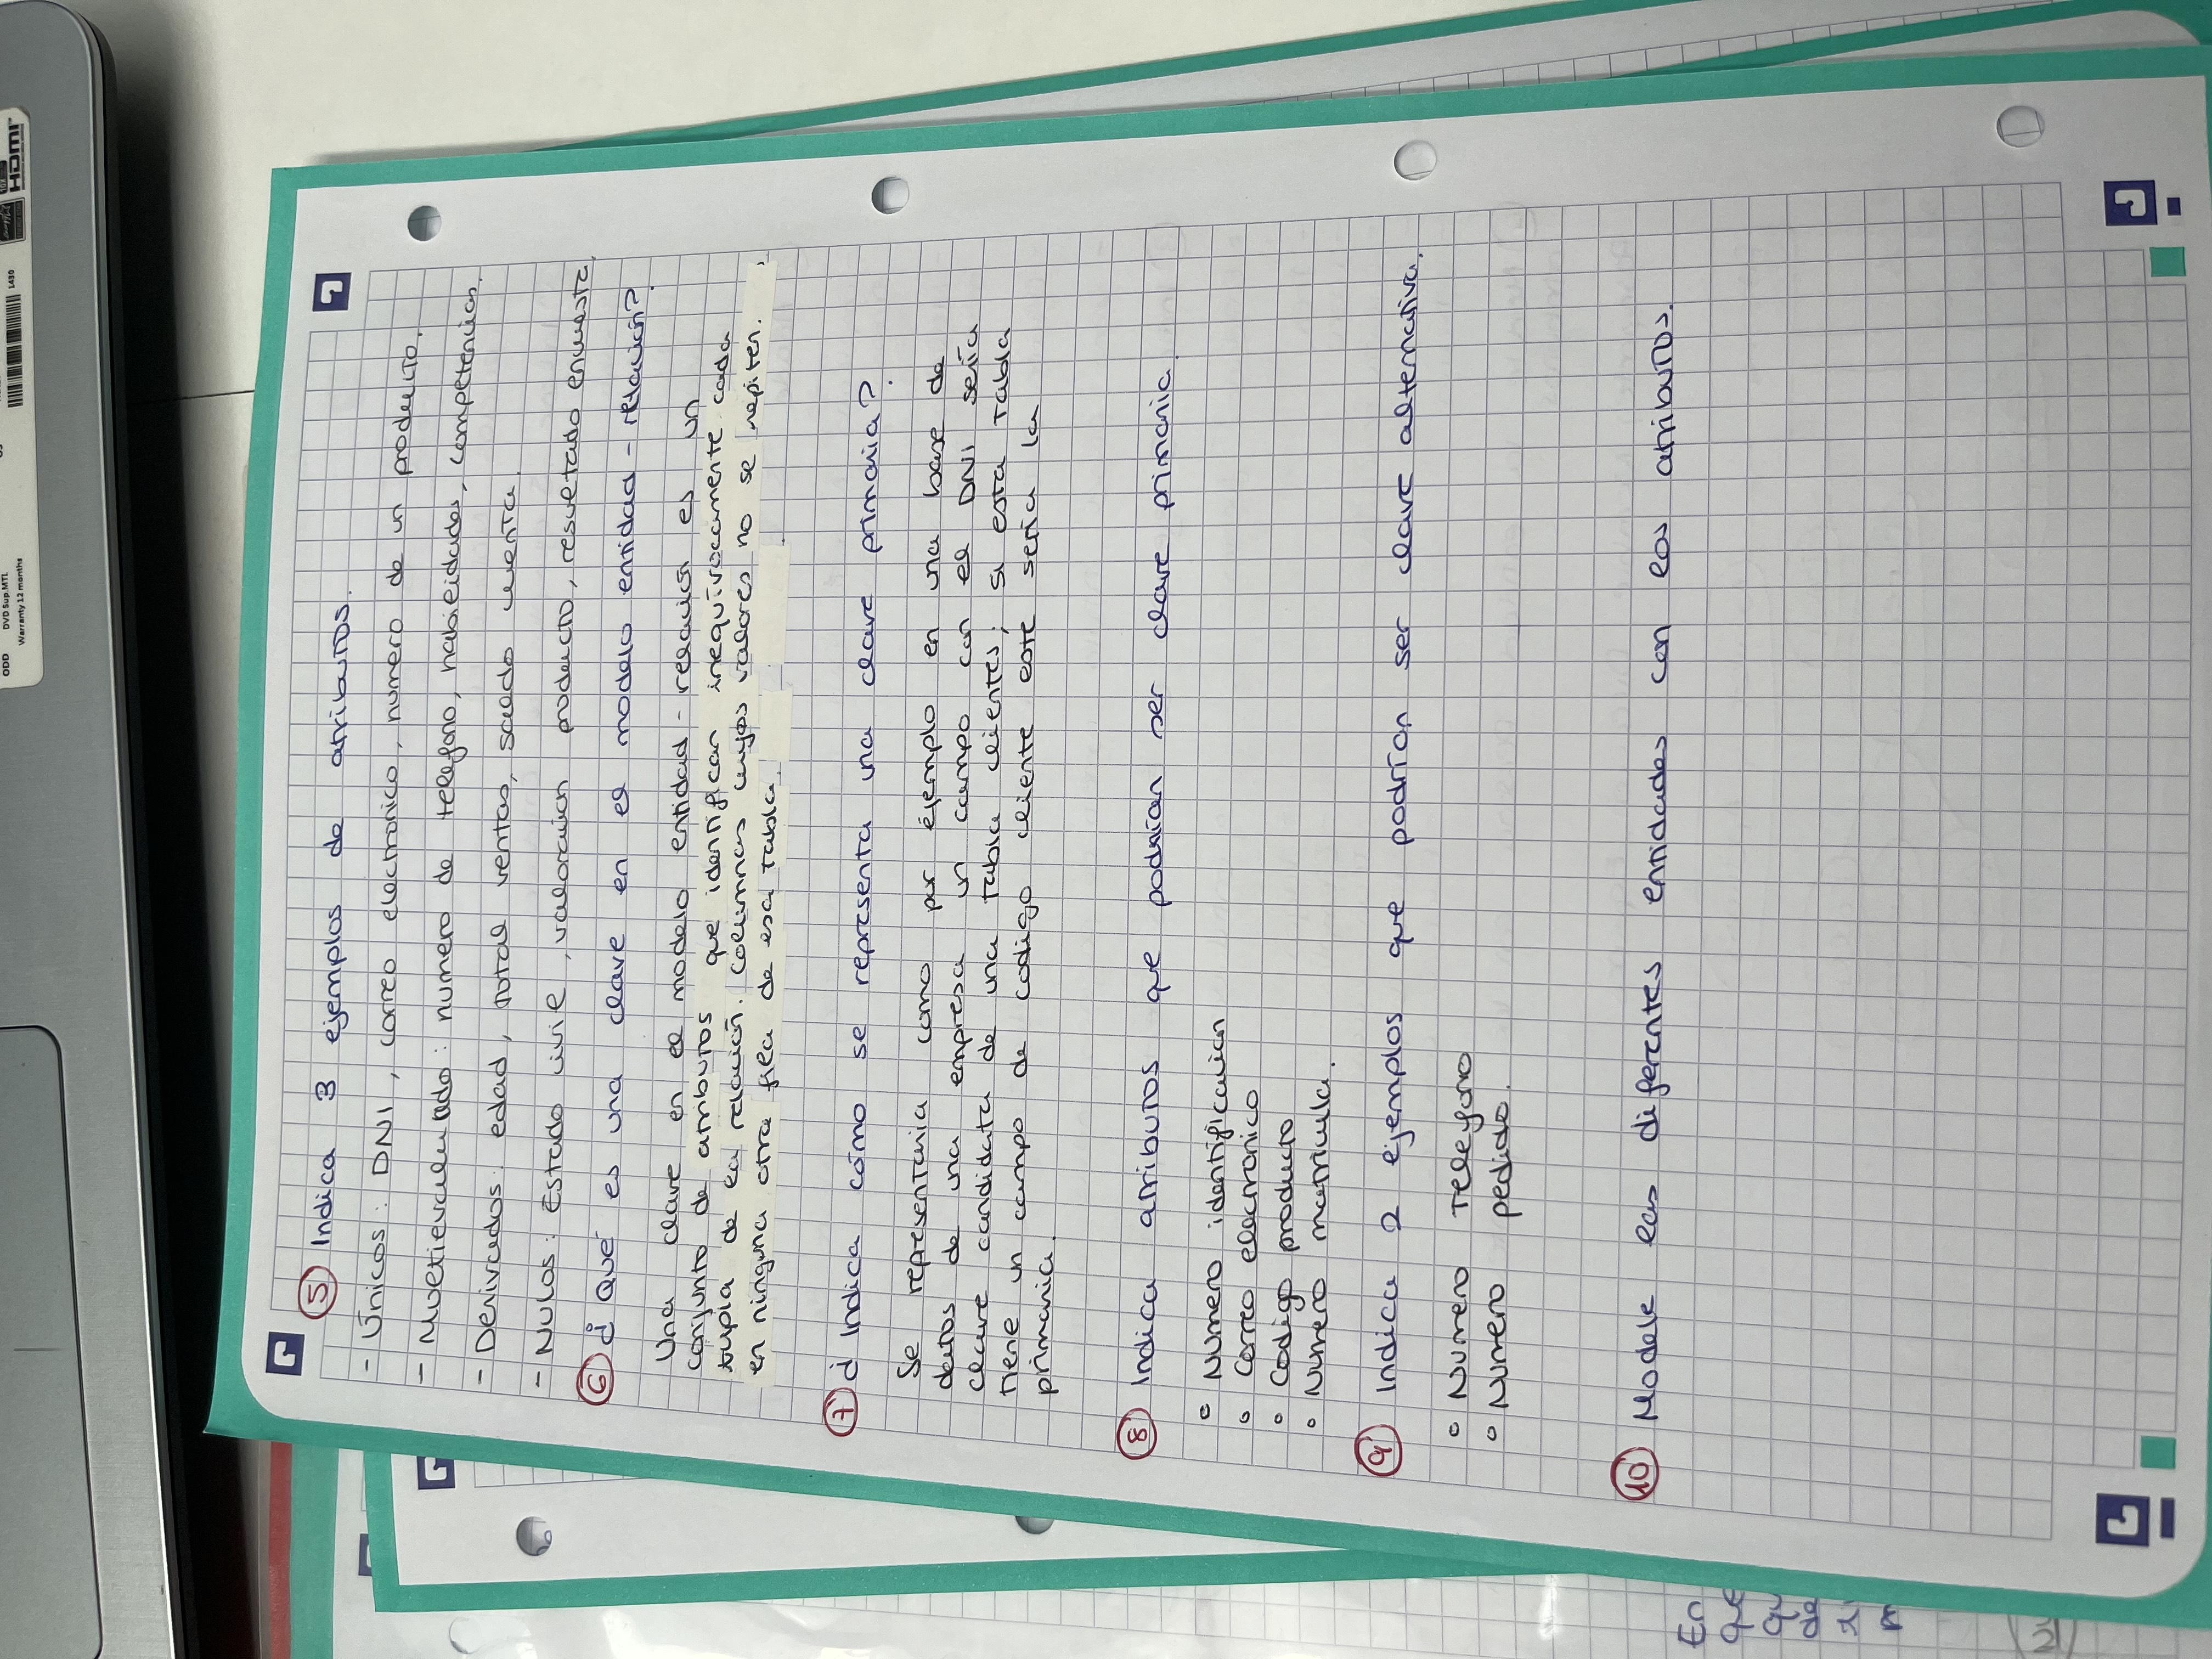 ODD DVD Sup.MTL
Warranty 12 months
1430
HDMI
5 Indica 3 ejemplos de atributos.
- Únicos: DNI, correo electronico, numero de un producto.
- Multievaluado: numero de telefono, habilidades, competencias.
- Derivados: edad, total ventas, saldo cuenta.
- Nulos: Estado civil, valoracion producto, resultado encuesta.
6 ¿Qué es una clave en el modelo entidad-relación?
Una clave en el modelo entidad-relacion es un
conjunto de atributos que identifican inequívocamente cada
tupla de la relación. Columnas cuyos valores no se repiten.
en ninguna otra fila de esa tabla.
7 ¿Indica cómo se representa una clave primaria?
Se representaria como por ejemplo en una base de
datos de una empresa un campo con el DNI sería
clave candidata de una tabla clientes; si esta tabla
tiene un campo de codigo cliente este seria la
primaria.
8 Indica atributos que podrían ser clave primaria.
Numero identificacion
Correo electronico
Codigo producto
Numero matricula.
9 Indica 2 ejemplos que podrían ser clave alternativa.
Numero Telefono
Numero pedido.
10 Modele las diferentes entidades con los atributos.
En
que
qu
de